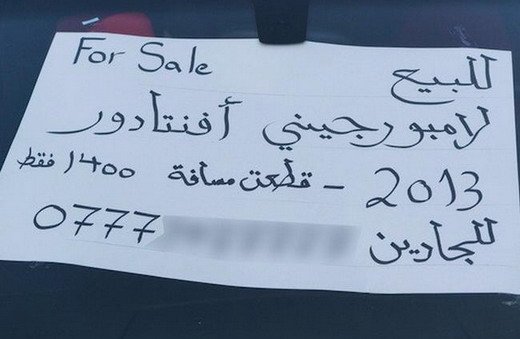 للبيع For Sale
لامبورجيني أفنتادور
2013 - قطعت مسافة 1400 فقط
للجادين 0777